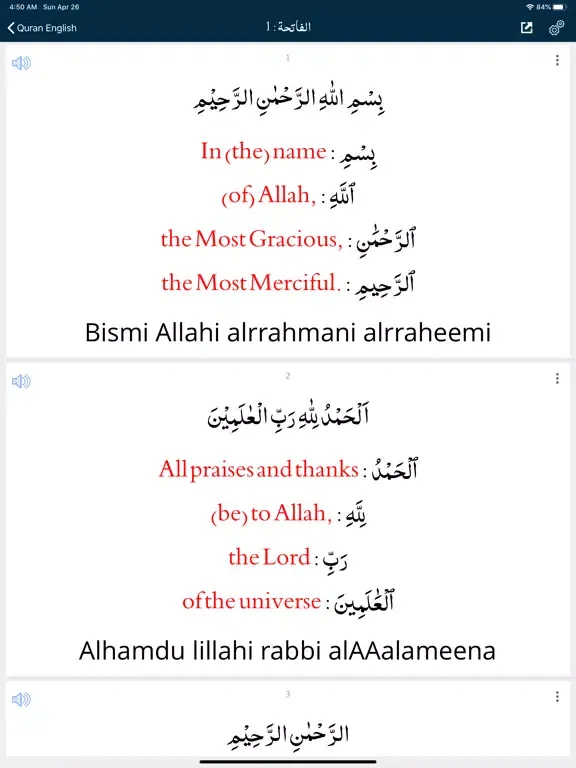 4:50 AM Sun Apr 26 84%
Quran English الفاتحة: 1
1
بِسْمِ اللهِ الرَّحْمٰنِ الرَّحِيْمِ
In (the) name : بِسْمِ
(of) Allah, : ٱللَّهِ
the Most Gracious, : ٱلرَّحْمَٰنِ
the Most Merciful. : ٱلرَّحِيمِ
Bismi Allahi alrrahmani alrraheemi
2
اَلْحَمْدُ لِلّٰهِ رَبِّ الْعٰلَمِيْنَ
All praises and thanks : ٱلْحَمْدُ
(be) to Allah, : لِلَّهِ
the Lord : رَبِّ
of the universe : ٱلْعَٰلَمِينَ
Alhamdu lillahi rabbi alAAalameena
3
الرَّحْمٰنِ الرَّحِيْمِ